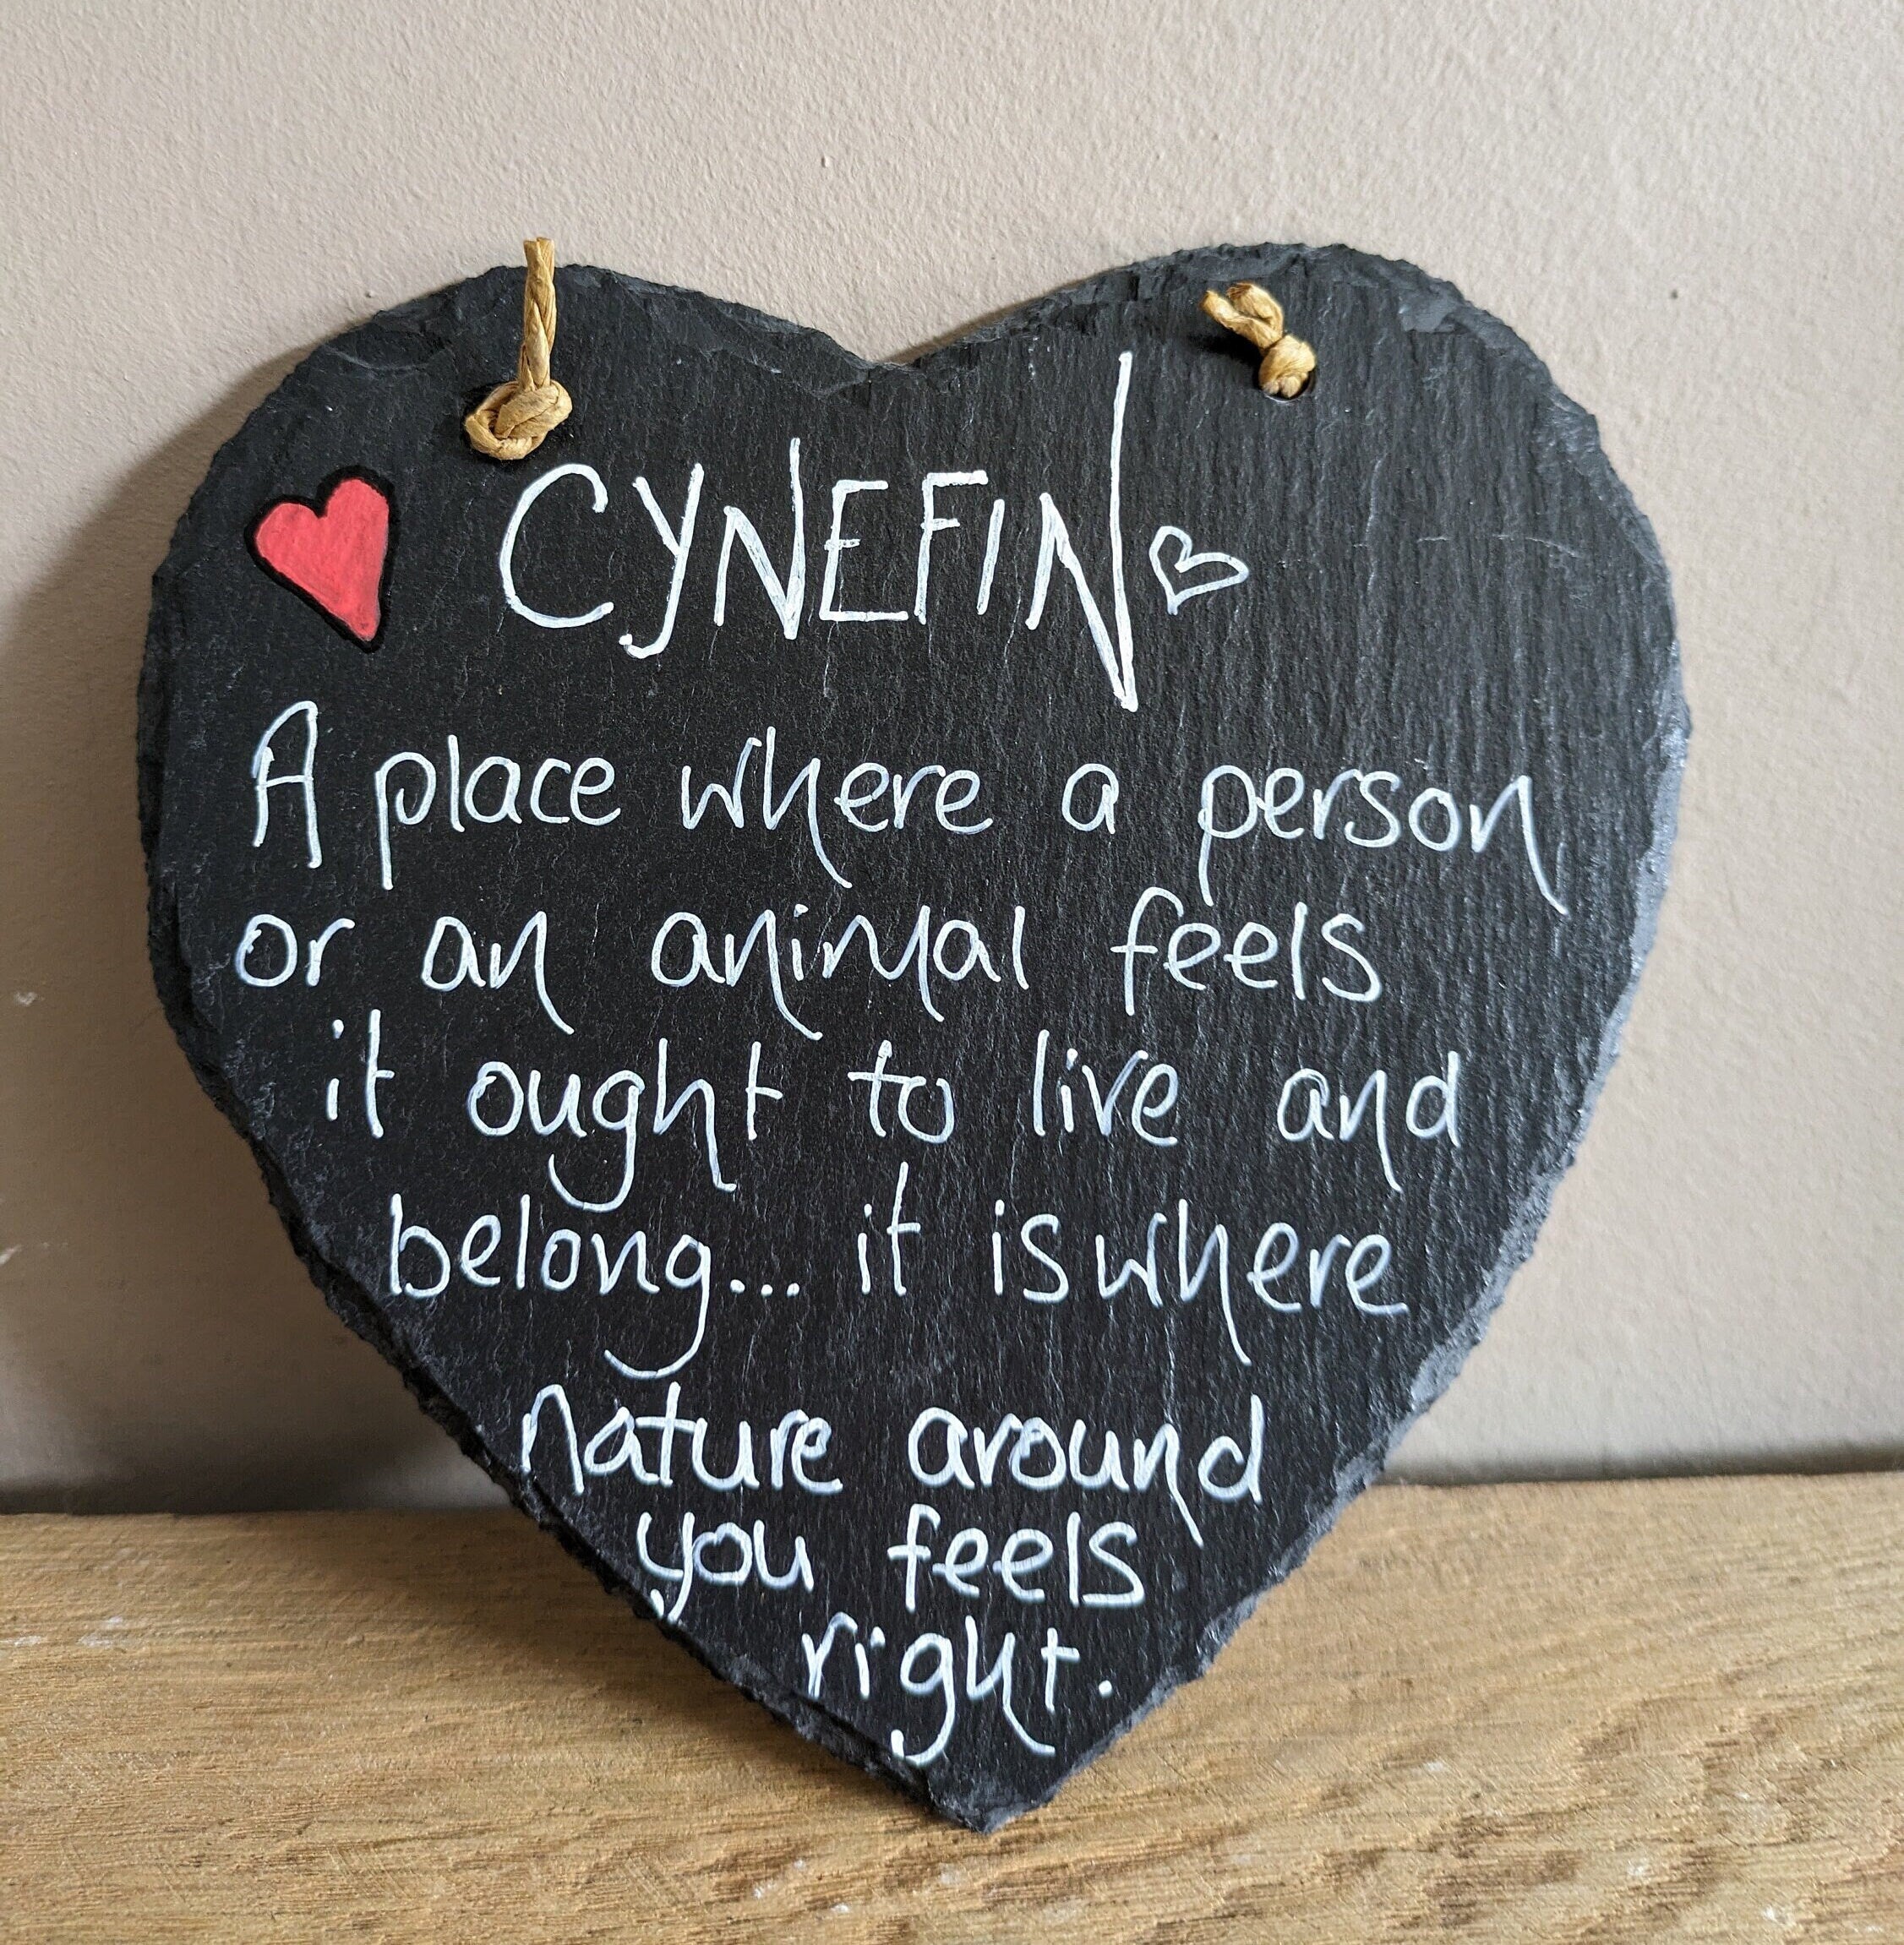 CYNEFIN
A place where a person
or an animal feels
it ought to live and
belong... it is where
nature around
you feels
right.